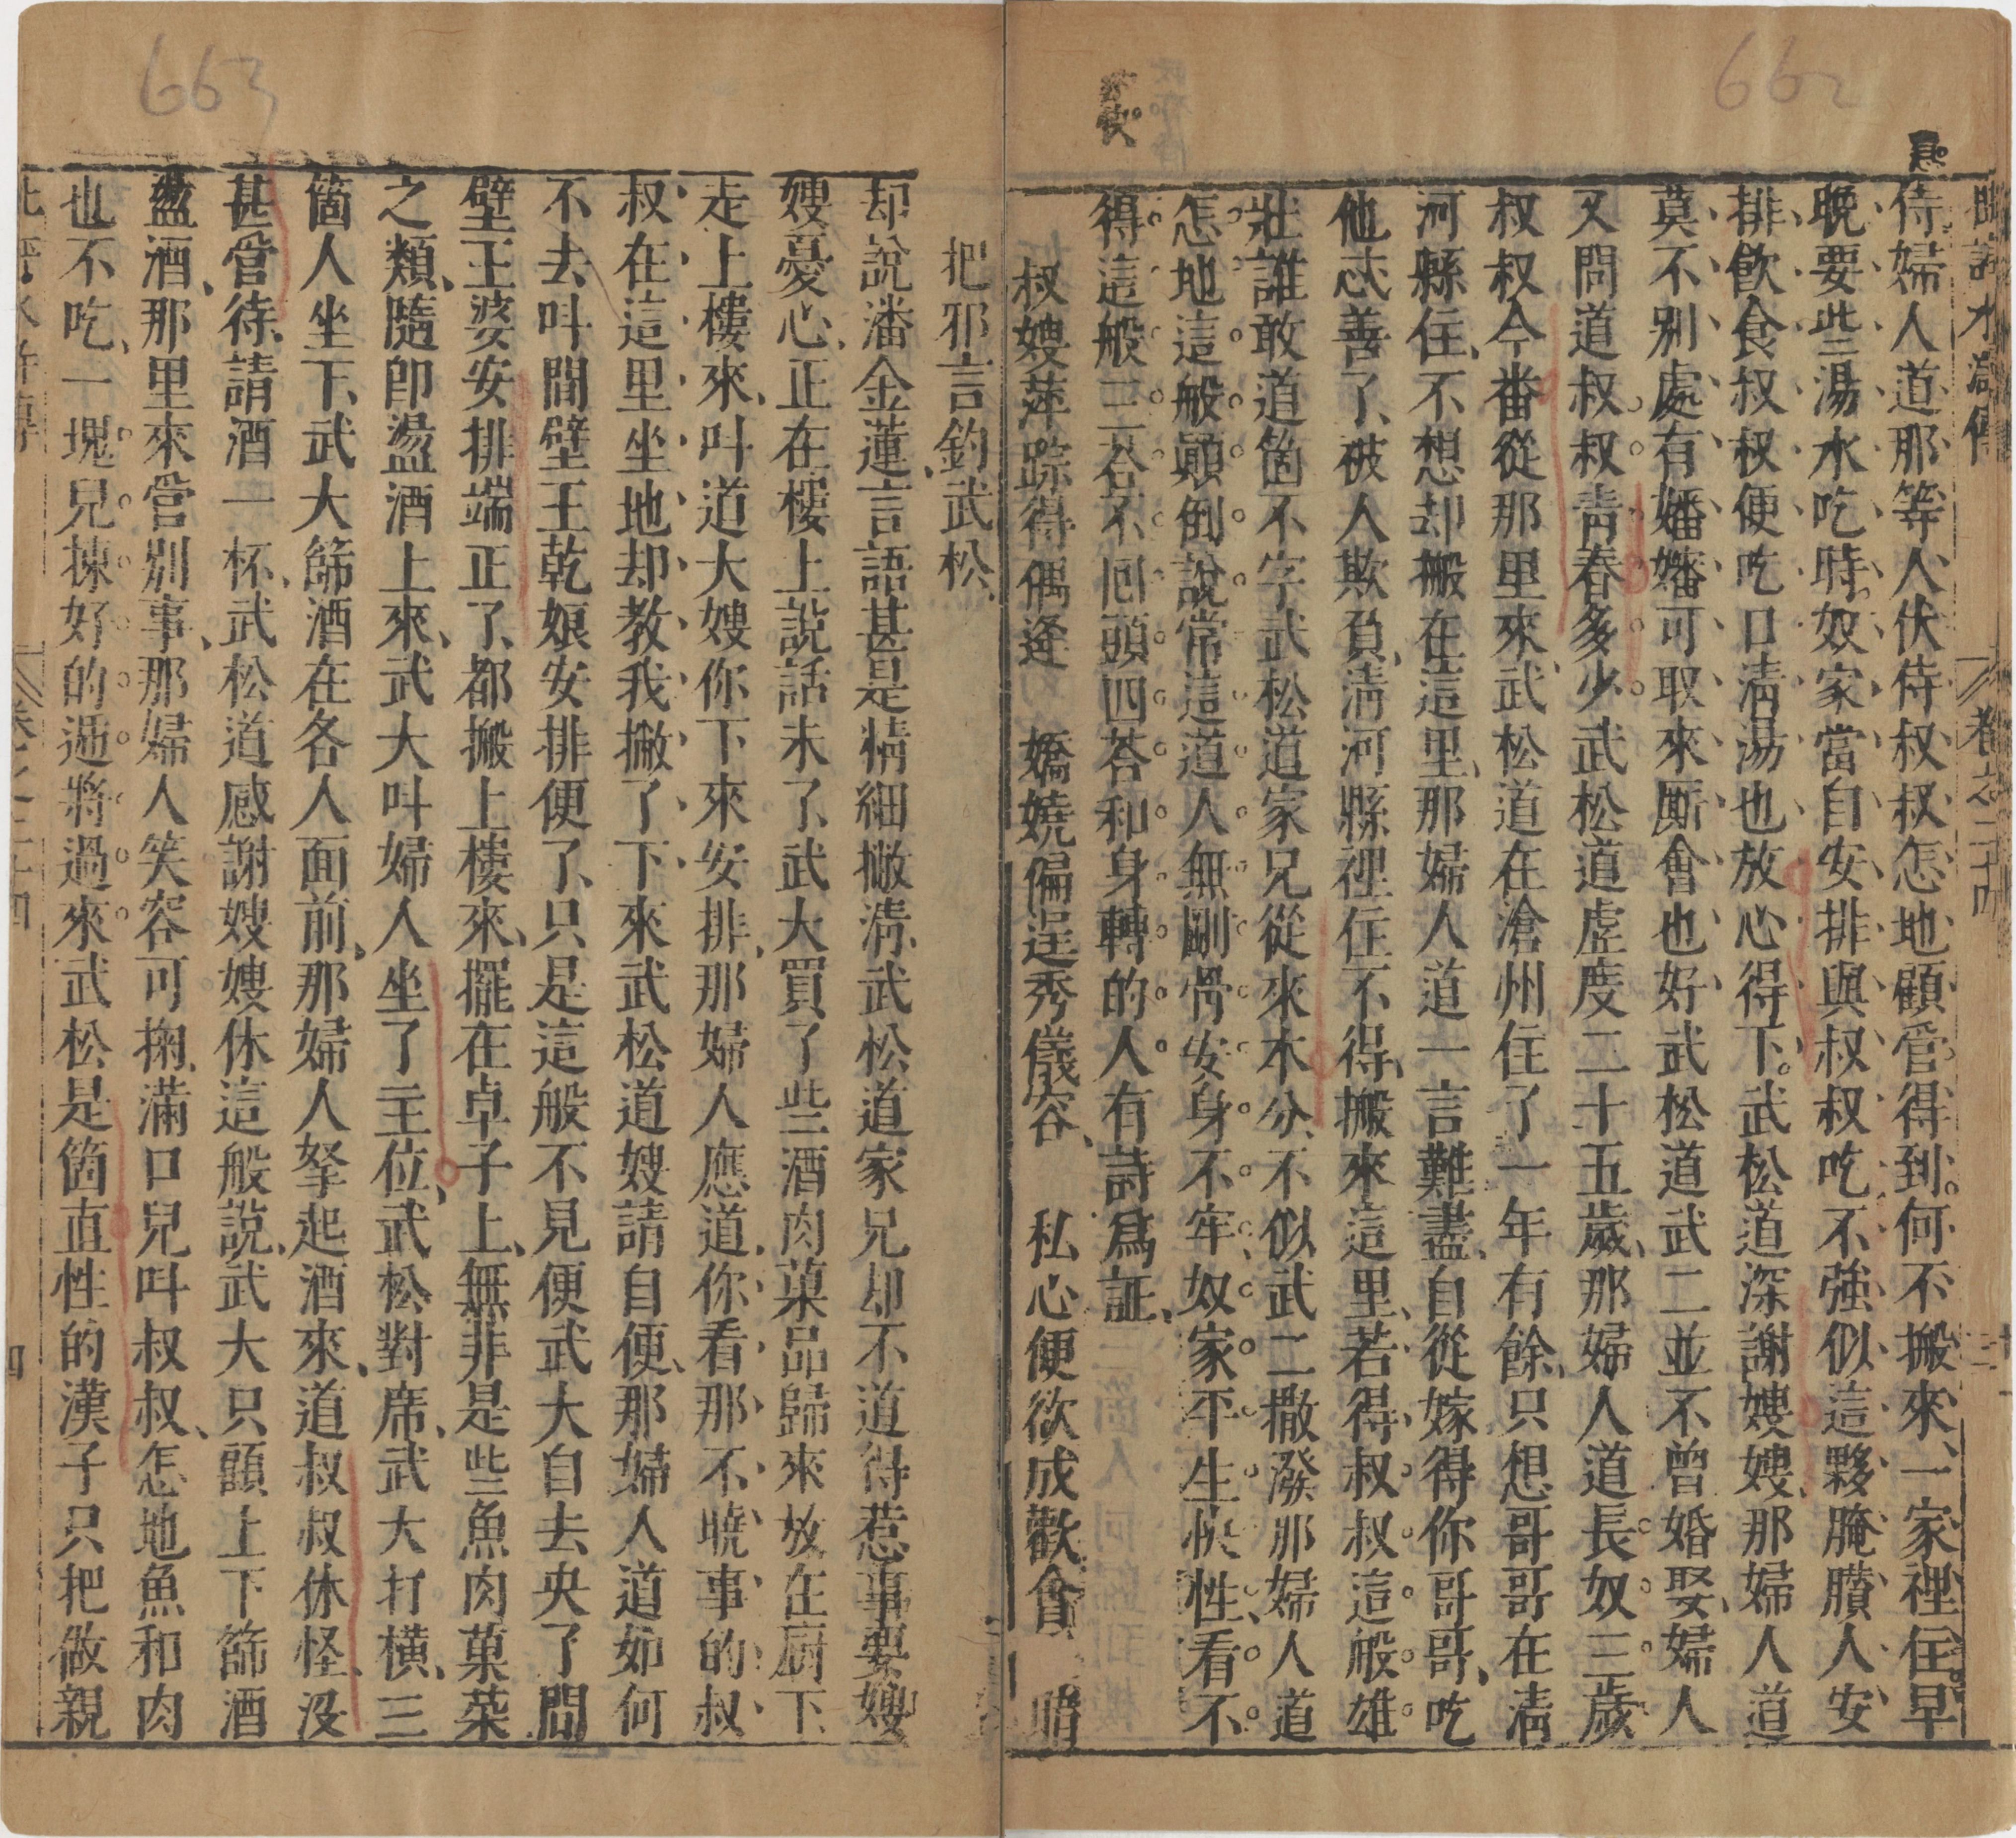 662
忠義水滸傳 卷之二十四 三
侍婦人道那等人伏侍叔叔怎地顧管得到何不搬來一家裡住早
晚要些湯水吃時奴家當自安排與叔叔吃不強似這夥腌臢人安
排飲食叔叔便吃口清湯也放心得下武松道深謝嫂嫂那婦人道
莫不別處有嬸嬸可取來厮會也好武松道武二並不曾婚娶婦人
又問道叔叔青春多少武松道虛度二十五歲那婦人道長奴三歲
叔叔今番從那里來武松道在滄州住了一年有餘只想哥哥在清
河縣住不想却搬在這里那婦人道一言難盡自從嫁得你哥哥吃
他忒善了被人欺負清河縣裡住不得搬來這里若得叔叔這般雄
壯誰敢道箇不字武松道家兄從來本分不似武二撒潑那婦人道
怎地這般顛倒說常這道人無剛骨安身不牢奴家平生快性看不
得這般三荅不回頭四荅和身轉的人有詩爲証
叔嫂萍踪得偶逢 嬌嬈偏逞秀儀容 私心便欲成歡會 暗
663
把邪言釣武松
却說潘金蓮言語甚是精細撇清武松道家兄却不道得惹事要嫂
嫂憂心正在樓上說話未了武大買了些酒肉菓品歸來放在厨下
走上樓來叫道大嫂你下來安排那婦人應道你看那不曉事的叔
叔在這里坐地却教我撇了下來武松道嫂請自便那婦人道如何
不去叫間壁王乾娘安排便了只是這般不見便武大自去央了間
壁王婆安排端正了都搬上樓來擺在卓子上無非是些魚肉菓菜
之類隨即盪盪酒上來武大叫婦人坐了主位武松對席武大打橫三
箇人坐下武大篩酒在各人面前那婦人拏起酒來道叔叔休怪沒
甚管待請酒一杯武松道感謝嫂嫂休這般說武大只顧上下篩酒
盪酒那里來管別事那婦人笑容可掬滿口兒叫叔叔怎地魚和肉
也不吃一塊兒揀好的遞將過來武松是箇直性的漢子只把做親